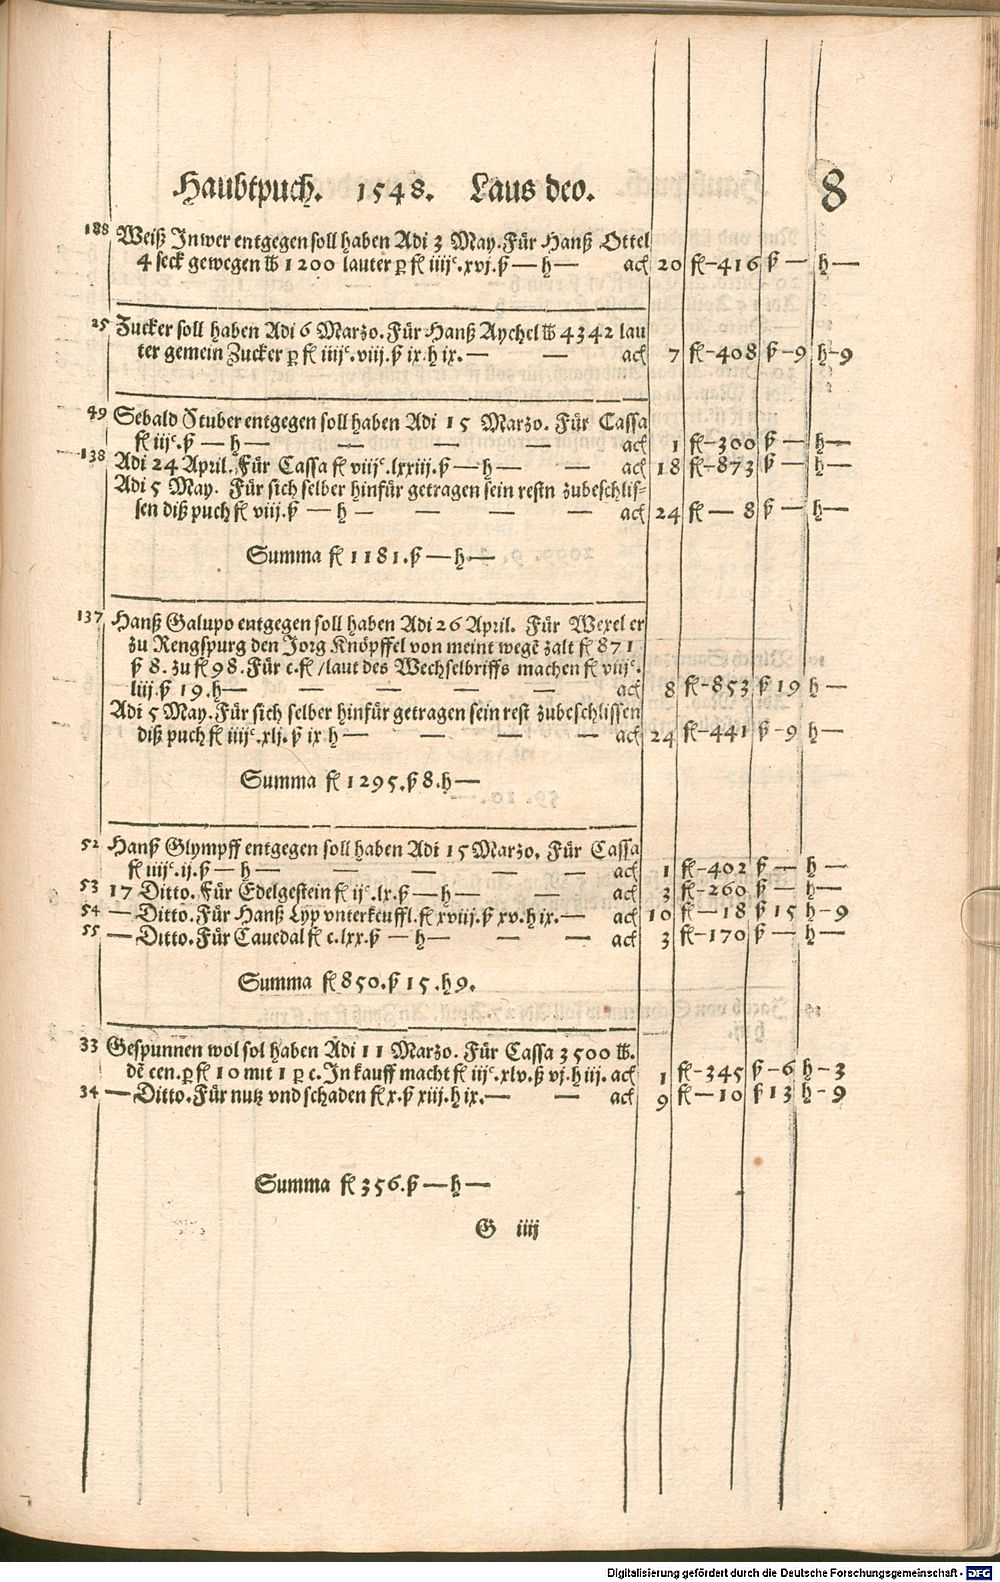 Haubtpuch. 1548. Laus deo. 8
188 Weiß Inwer entgegen soll haben Adi 3 May. Für Hanß Ottel
4 seck gewegen ℔ 1200 lauter ꝑ fl iiijᶜ.xvj.ß — h — ach 20 fl–416 ß — h —
25 Zucker soll haben Adi 6 Marzo. Für Hanß Aychel ℔ 4342 lau
ter gemein Zucker ꝑ fl iiijᶜ.viij.ß ix.h ix. — — ach 7 fl–408 ß–9 h–9
49 Sebald Stuber entgegen soll haben Adi 15 Marzo. Für Cassa
fl iijᶜ.ß — h — — — — ach 1 fl–300 ß — h —
138 Adi 24 April. Für Cassa fl viijᶜ.lxxiij.ß — h — — ach 18 fl–873 ß — h —
Adi 5 May. Für sich selber hinfür getragen sein restn zubeschlis=
sen diß puch fl viij.ß — h — — — — ach 24 fl — 8 ß — h —
Summa fl 1181.ß — h —
137 Hanß Galupo entgegen soll haben Adi 26 April. Für Wexel er
zu Rengspurg den Jorg Knöpffel von meint wegē zalt fl 871
ß 8. zu fl 98. Für c.fl / laut des Wechselbriffs machen fl viijᶜ.
liij.ß 19.h — — — — — ach 8 fl–853 ß 19 h —
Adi 5 May. Für sich selber hinfür getragen sein rest zubeschlissen
diß puch fl iiijᶜ.xlj.ß ix h — — — — ach 24 fl–441 ß–9 h —
Summa fl 1295.ß 8.h —
52 Hanß Glympff entgegen soll haben Adi 15 Marzo. Für Cassa
fl iiijᶜ.ij.ß — h — — — — — ach 1 fl–402 ß — h —
53 17 Ditto. Für Edelgestein fl ijᶜ.lx.ß — h — — ach 3 fl–260 ß — h —
54 — Ditto. Für Hanß Lyp vnterkeuffl. fl xviij.ß xv.h ix. — ach 10 fl — 18 ß 15 h–9
55 — Ditto. Für Cauedal fl c.lxx.ß — h — — — ach 3 fl–170 ß — h —
Summa fl 850.ß 15.h 9.
33 Gespunnen wol sol haben Adi 11 Marzo. Für Cassa 3500 ℔.
dē cen.ꝑ fl 10 mit 1 ꝑ c. In kauff macht fl iijᶜ.xlv.ß vj.h iij. ach 1 fl–345 ß–6 h–3
34 — Ditto. Für nutz vnd schaden fl x.ß xiij.h ix. — — ach 9 fl — 10 ß 13 h–9
Summa fl 356.ß — h —
G iiij
Digitalisierung gefördert durch die Deutsche Forschungsgemeinschaft - DFG